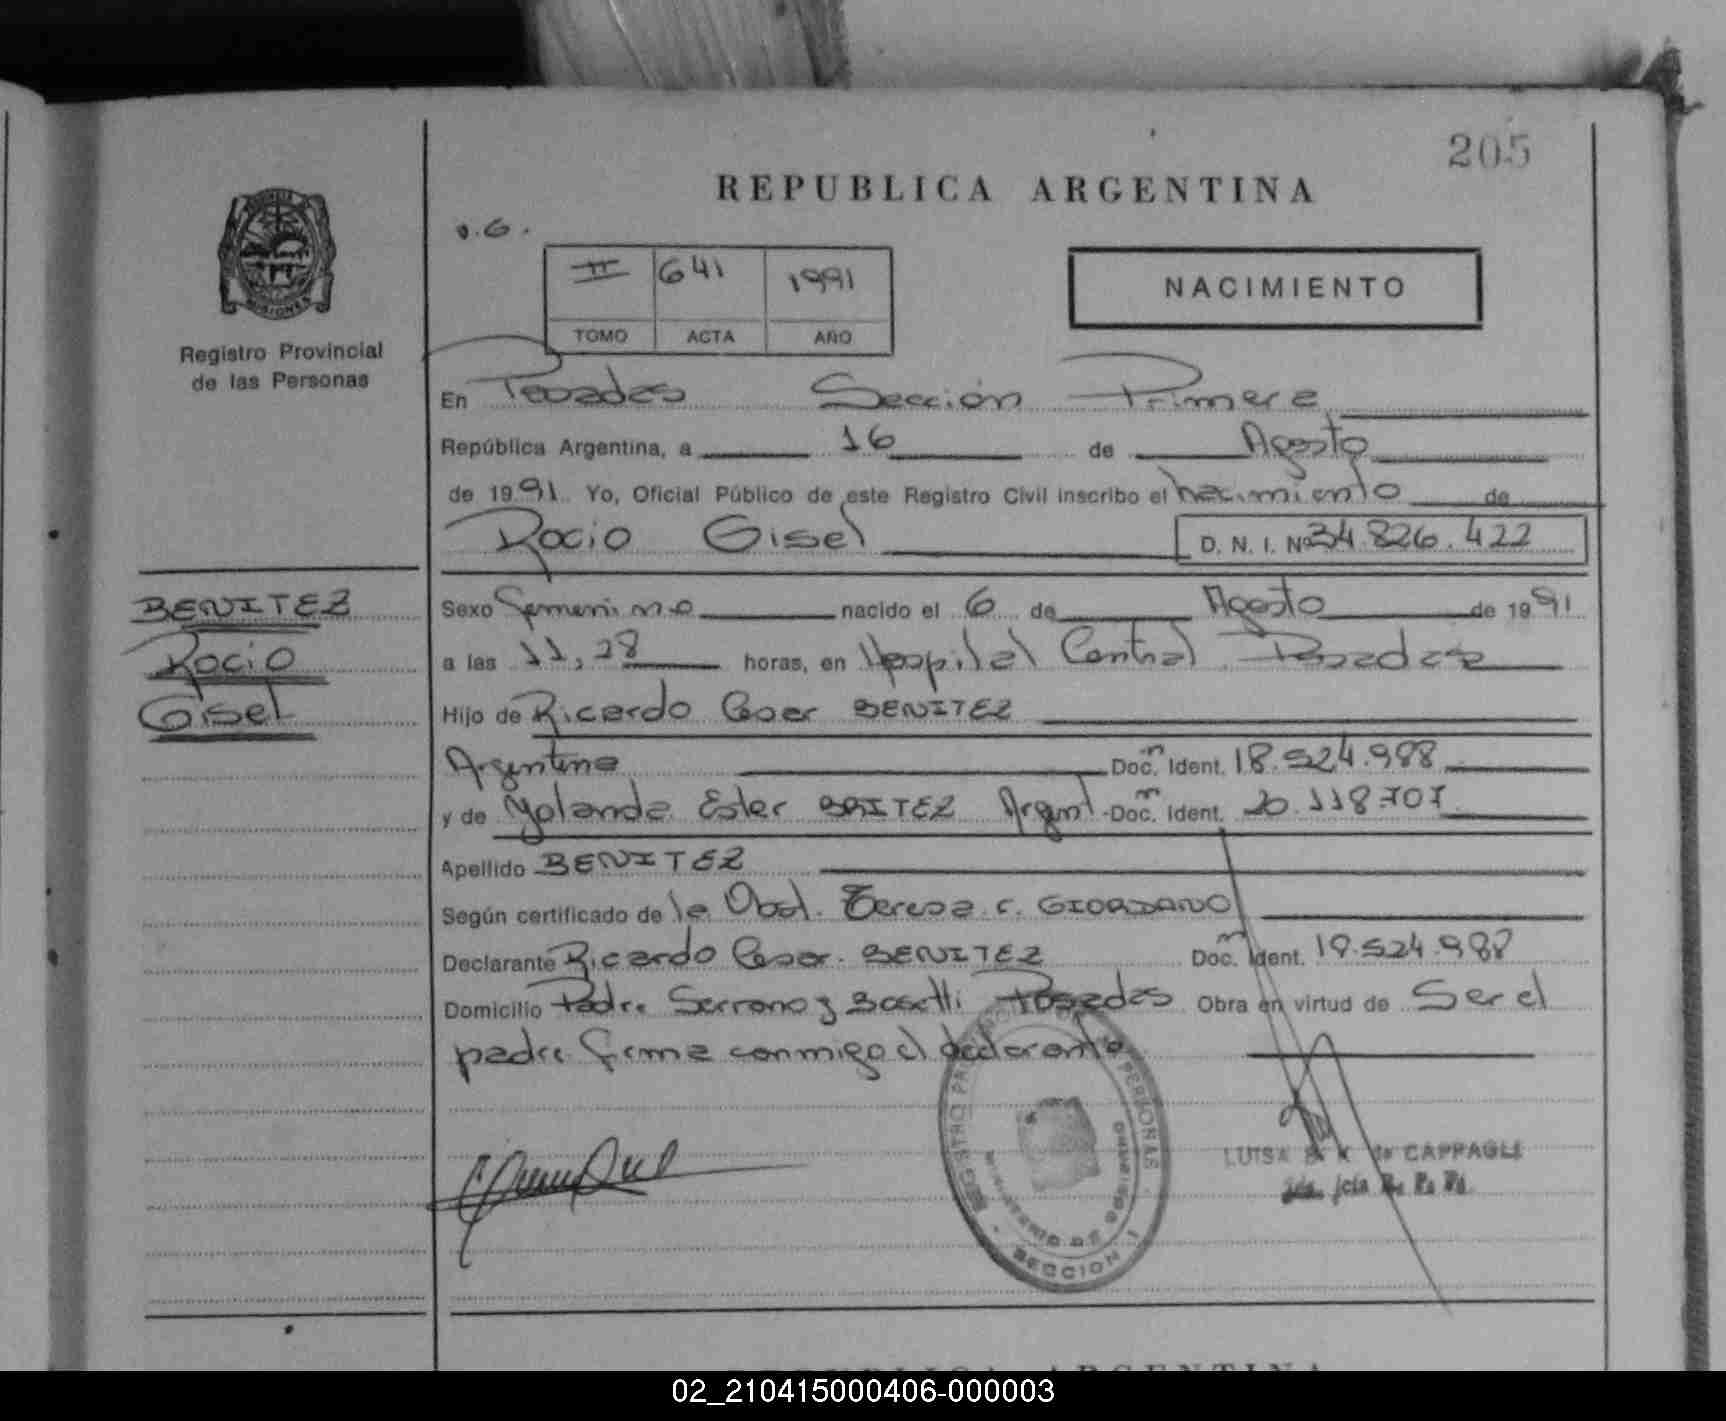 205
REPUBLICA ARGENTINA
II 641 1991
TOMO ACTA AÑO
NACIMIENTO
MISIONES
Registro Provincial
de las Personas
En Posadas Sección Primera
República Argentina, a 16 de Agosto
de 1991 Yo, Oficial Público de este Registro Civil inscribo el nacimiento de
Rocio Gisel D. N. I. Nº 34.826.422
BENITEZ
Rocio
Gisel
Sexo Femenino nacido el 6 de Agosto de 1991
a las 11,28 horas, en Hospital Central Posadas
Hijo de Ricardo Cesar BENITEZ
Argentina Doc. Ident. 18.524.988
y de Yolanda Ester BRITEZ Argent. Doc. Ident. 20.118.707
Apellido BENITEZ
Según certificado de la Obst. Teresa C. GIORDANO
Declarante Ricardo Cesar BENITEZ Doc. Ident. 18.524.988
Domicilio Padre Serrano y Bosetti Posadas Obra en virtud de Ser el
padre firma conmigo el declarante
REGISTRO PERSONAS
MINISTERIO DE GOBIERNO
SECCION I
LUISA CAPPAGLI
REPUBLICA ARGENTINA
02_210415000406-000003